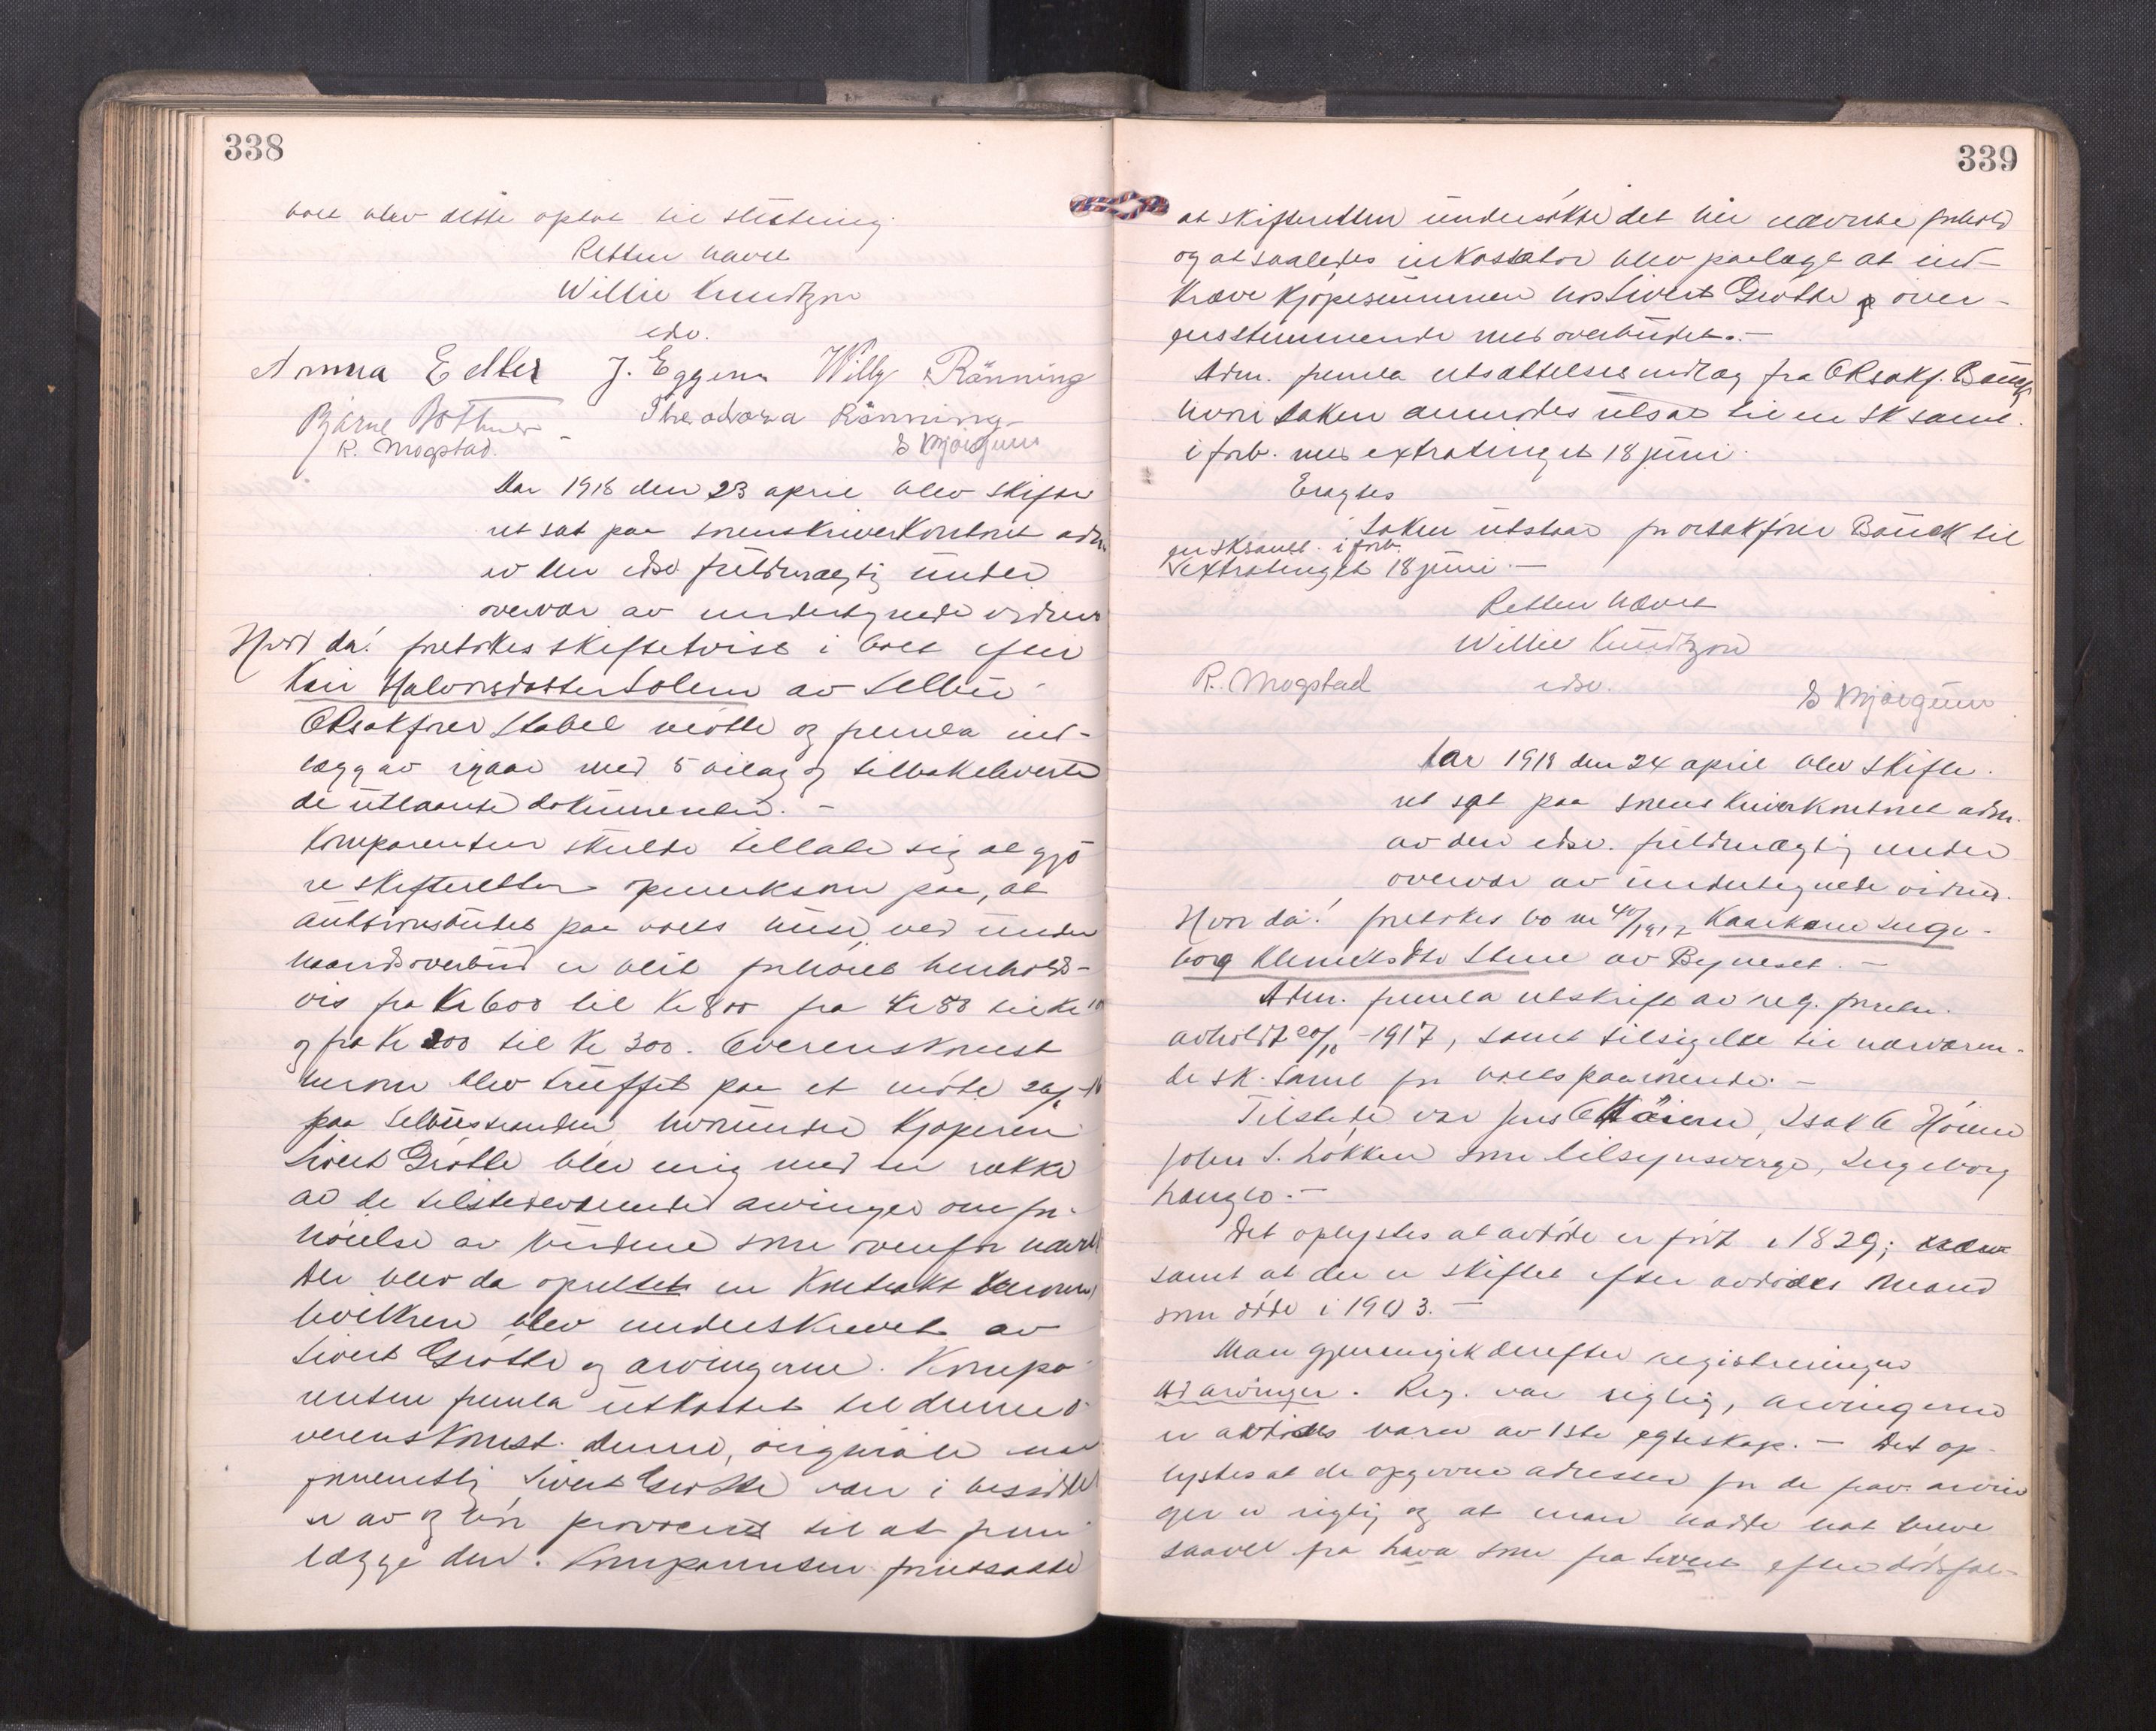 338
boet blev dette optat til slutning.
Retten hævet
Willie Knudtzon
edsv.
Anna Edler J. Eggen Willy Rönning
Bjarne Bothner Theodora Rönning
R. Mogstad. E Mjøegum
Aar 1918 den 23 april blev skifte
ret sat paa sorenskriverkontoret adm.
av den edsv fuldmægtig under
overvær av undertegnede vidner
Hvor da! foretokes skiftetvist i boet efter
Kari Halvorsdatter Solem av Selbu
ORsakfører Stabel møtte og fremla ind-
lægg av igaar med 5 bilag og tilbakeleverte
de utlaante dokumenter. –
Komparenten skulde tillate sig at gjø
re skifteretten opmerksom paa, at
auktionsbudet paa boets huse ved under
haandsoverbud er blit forhøiet henholds-
vis fra Kr 600 til Kr 800 fra Kr 80 til Kr 10
og fra Kr 200 til Kr 300. Overenskomst
herom blev truffet paa et møte
paa Selbustranden hvorunder kjøperen
Sivert Grøtte blev enig med en række
av de tilstedeværende arvinger om for-
høielse av budene som ovenfor nævnt
Der blev da oprettet en kontrakt herom
hvilken blev underskrevet av
Sivert Grøtte og arvingerne. Kompa-
renten fremla utkastet til denne o-
verenskomst. denne, originale
formentlig Sivert Grøtte var i besiddel
se av og bør provoceres til at frem
lægge den. Komparenten forutsatte
339
at skifteretten undersøkte det her nævnte forhold
og at saaledes inkassator blev paalagt at ind-
kræve kjøpesummen hos Sivert Grøtte over-
ensstemmende med overbudet. –
Adm. fremla utsættelsesindlæg fra ORsakf. Bauck
hvori saken anmodes utsat til en sk saml.
i forb. med extratinget 18 juni.
Eragtes
Saken utstaar for orsakfører Bauck til
en sksaml. i forb.
extratinget 18 juni. –
Retten hævet
Willie Knudtzon
R. Mogstad edsv. E Mjøegum
Aar 1918 den 24 april blev skifte.
ret sat paa sorenskriverkontoret adm.
av den edsv. fuldmægtig under
overvær av undertegnede vidner.
Hvor da! foretokes bo nr 40/1917 Kaarkone Inge-
borg Klemetsdtr Stene av Bynesset. –
Adm. fremla utskrift av reg. forretn.
avholdt 20/10-1917, samt tilsigelse til nærværen-
de sk. saml for boets paarørende. –
Tilstede var Jens O Høiem, Isak O Høiem
John S. Løkken som tilsynsverge, Ingeborg
Hanglo. –
Det oplystes at avdøde er født i 1829;
samt at der er skiftet efter avdødes Mand
som døde i 1903. –
Man gjennemgik derefter registreringen
Ad arvinger. Reg. var rigtig, arvingerne
er avdødes barn av 1ste egteskap. – Det op-
lystes at de opgivne adresser for de frav. arvin
ger er rigtig og at man hadde hat breve
saavel fra Lava som fra Sivert efter dødsfal-